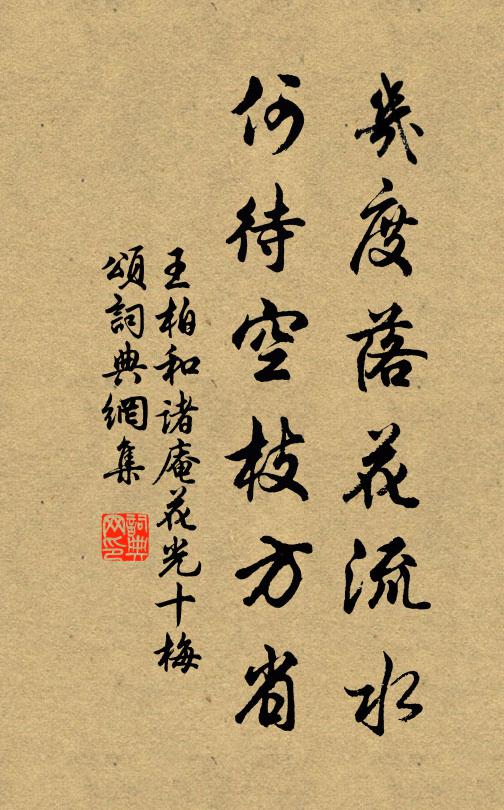 幾度落花流水
何待空枝方省
王柏和諸庵花光十梅
頌詞典網集
詞典
网印